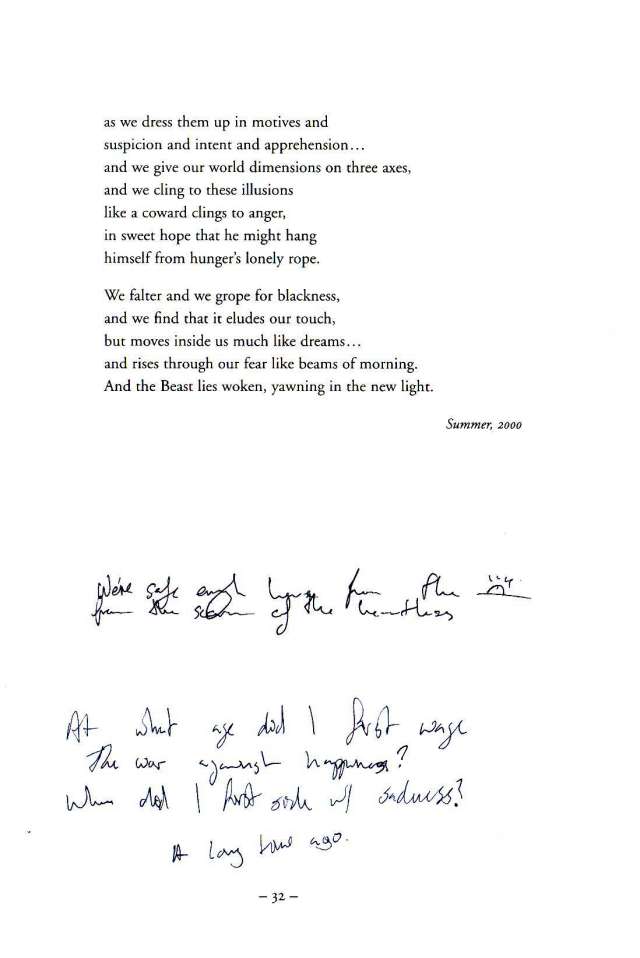 as we dress them up in motives and
suspicion and intent and apprehension...
and we give our world dimensions on three axes,
and we cling to these illusions
like a coward clings to anger,
in sweet hope that he might hang
himself from hunger's lonely rope.
We falter and we grope for blackness,
and we find that it eludes our touch,
but moves inside us much like dreams...
and rises through our fear like beams of morning.
And the Beast lies woken, yawning in the new light.
Summer, 2000
We're safe from the
from the of the heartless
At what age did I first wage
The war against happiness?
When did I first side w/ sadness?
A long time ago.
– 32 –